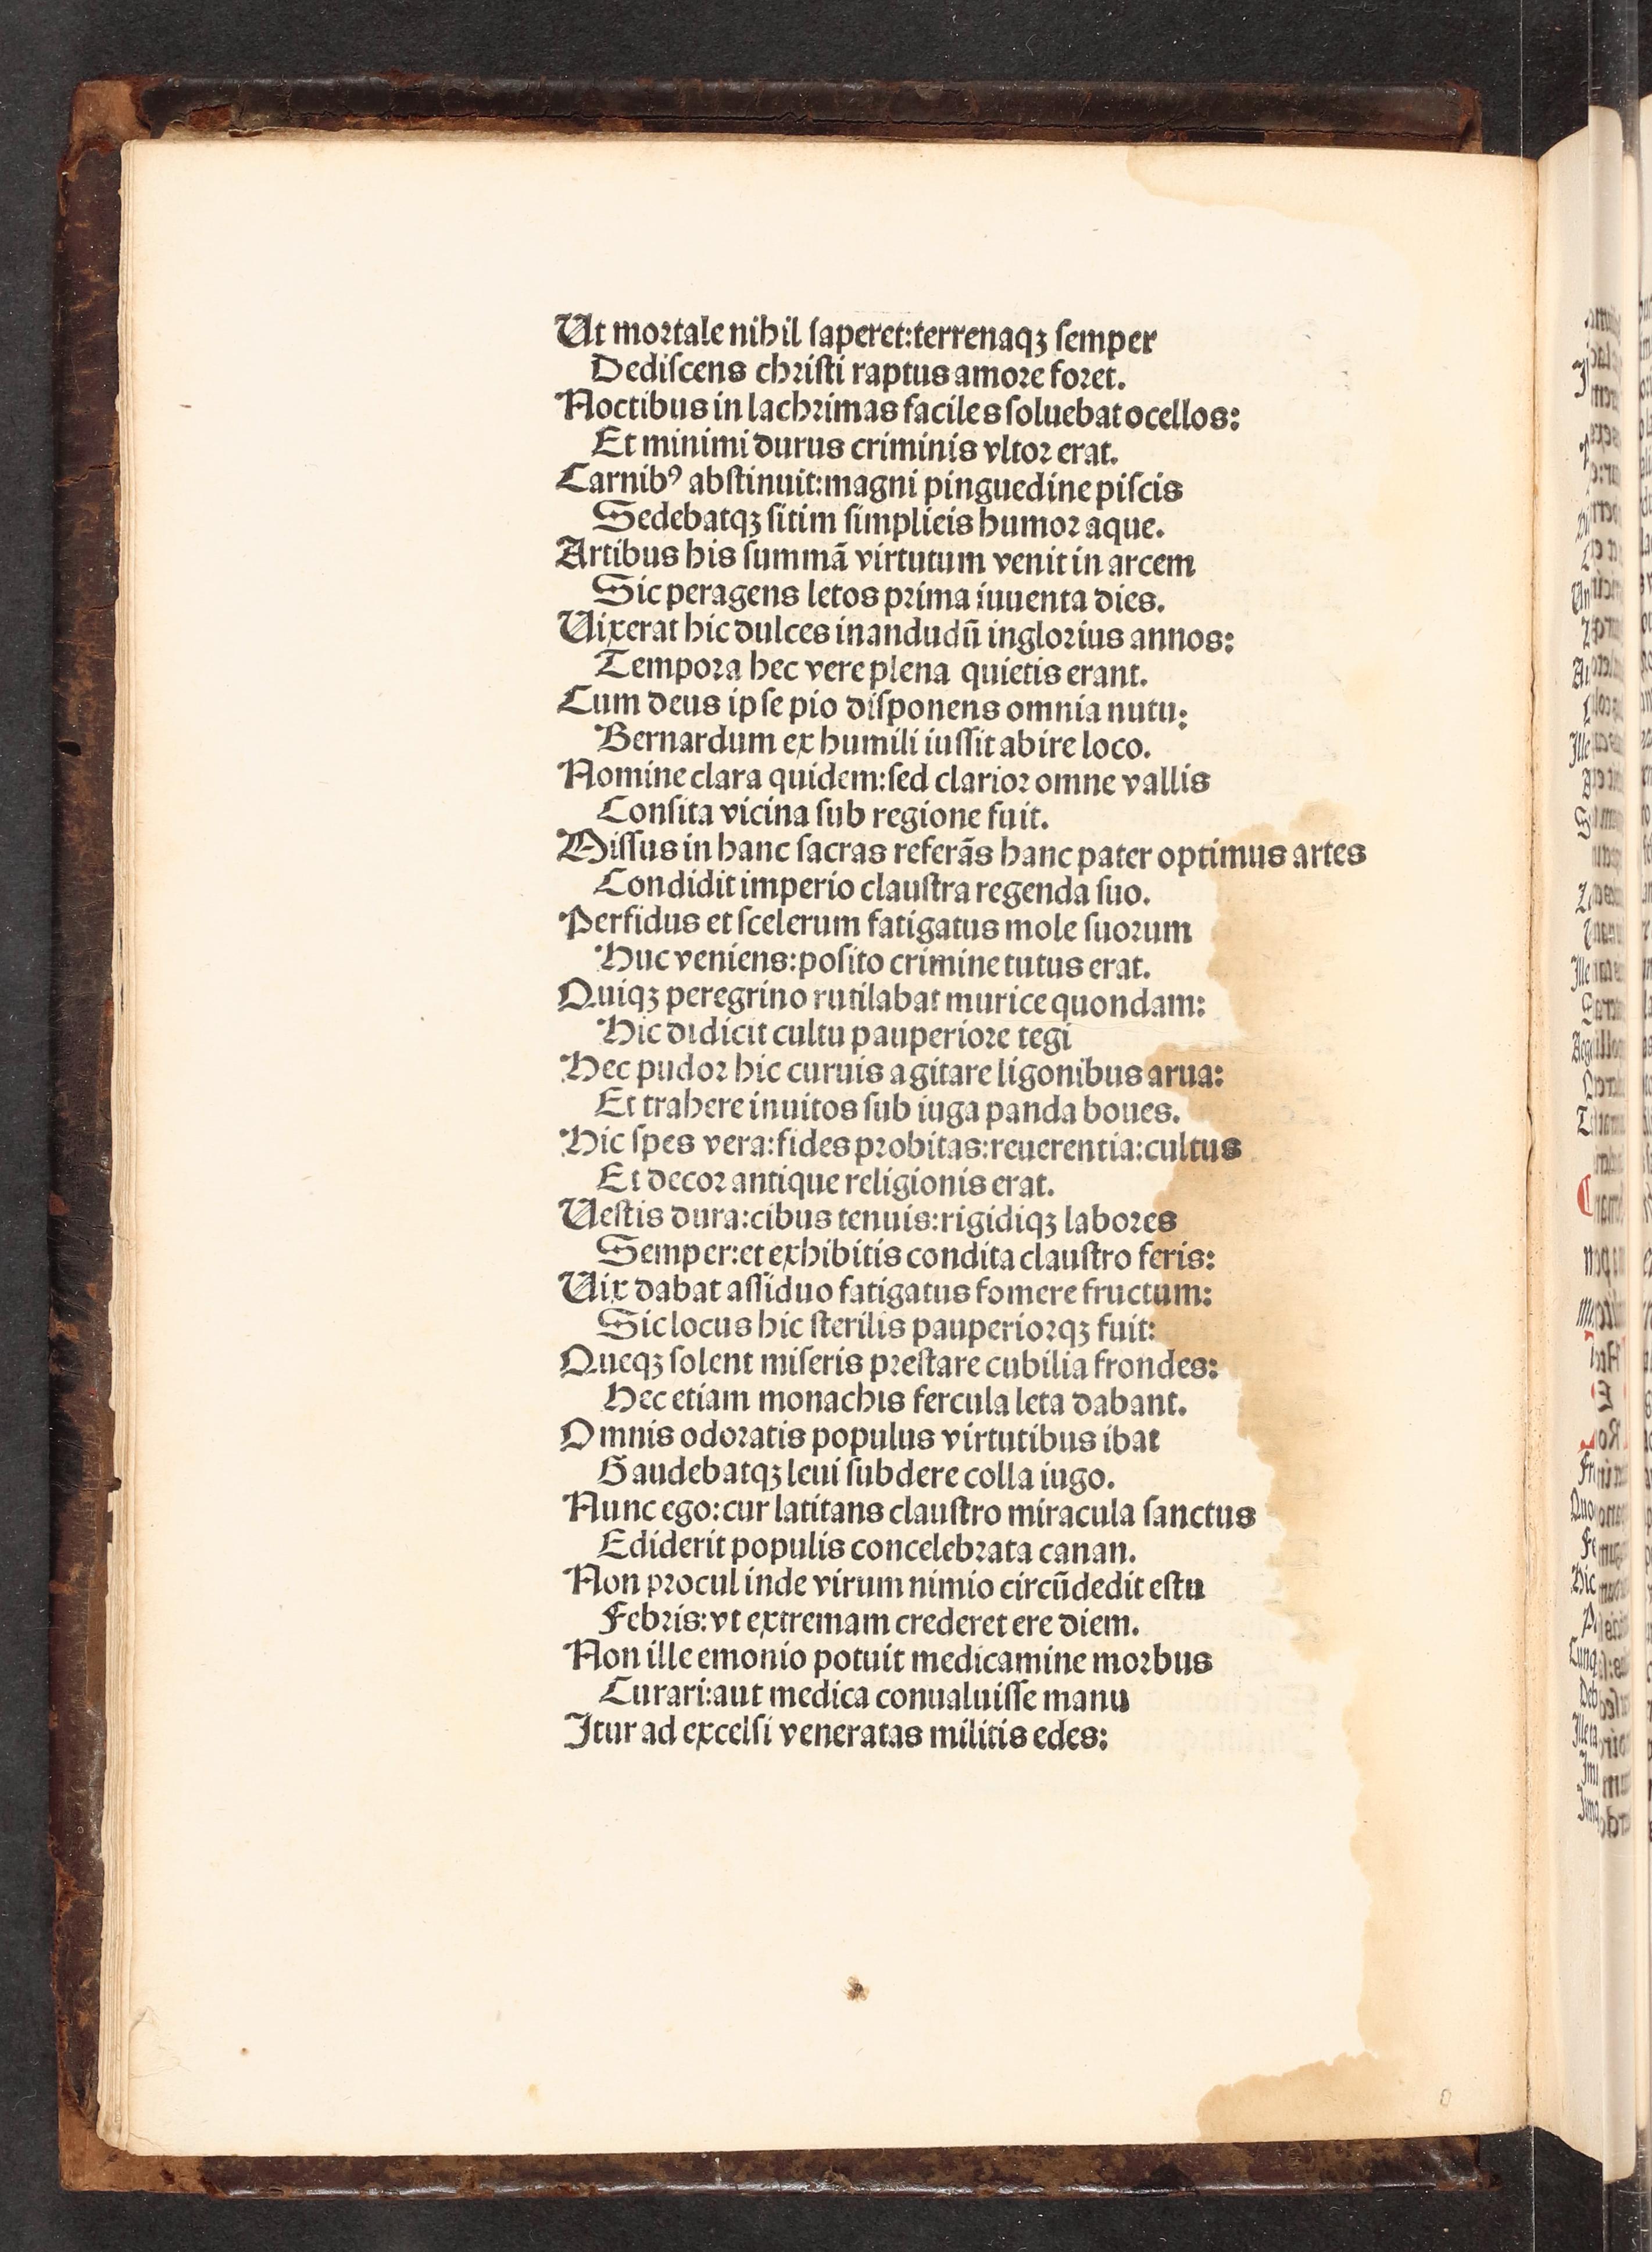 Ut mortale nihil ſaperet:terrenaqꝫ ſemper
Dediſcens chriſti raptus amore foret.
Noctibus in lachrimas faciles ſoluebat ocellos:
Et minimi durus criminis vltor erat.
Carnibꝰ abſtinuit:magni pinguedine piſcis
Sedebatqꝫ ſitim ſimplicis humor aque.
Artibus his ſummā virtutum venit in arcem
Sic peragens letos prima iuuenta dies.
Uixerat hic dulces inandudū inglorius annos:
Tempora hec vere plena quietis erant.
Cum deus ipſe pio diſponens omnia nutu:
Bernardum ex humili iuſſit abire loco.
Nomine clara quidem:ſed clarior omne vallis
Conſita vicina ſub regione fuit.
Miſſus in hanc ſacras referās hanc pater optimus artes
Condidit imperio clauſtra regenda ſuo.
Perfidus et ſcelerum fatigatus mole ſuorum
Huc veniens:poſito crimine tutus erat.
Quiqꝫ peregrino rutilabat murice quondam:
Hic didicit cultu pauperiore tegi
Hec pudor hic curuis agitare ligonibus arua:
Et trahere inuitos ſub iuga panda boues.
Hic ſpes vera:fides probitas:reuerentia:cultus
Et decor antique religionis erat.
Ueſtis dura:cibus tenuis:rigidiqꝫ labores
Semper:et exhibitis condita clauſtro feris:
Uix dabat aſſiduo fatigatus fomere fructum:
Sic locus hic ſterilis pauperiorqꝫ fuit:
Queqꝫ ſolent miſeris preſtare cubilia frondes:
Hec etiam monachis fercula leta dabant.
Omnis odoratis populus virtutibus ibat
Gaudebatqꝫ leui ſubdere colla iugo.
Nunc ego:cur latitans clauſtro miracula ſanctus
Ediderit populis concelebrata canan.
Non procul inde virum nimio circūdedit eſtu
Febris:vt extremam crederet ere diem.
Non ille emonio potuit medicamine morbus
Curari:aut medica conualuiſſe manu
Itur ad excelſi veneratas militis edes: